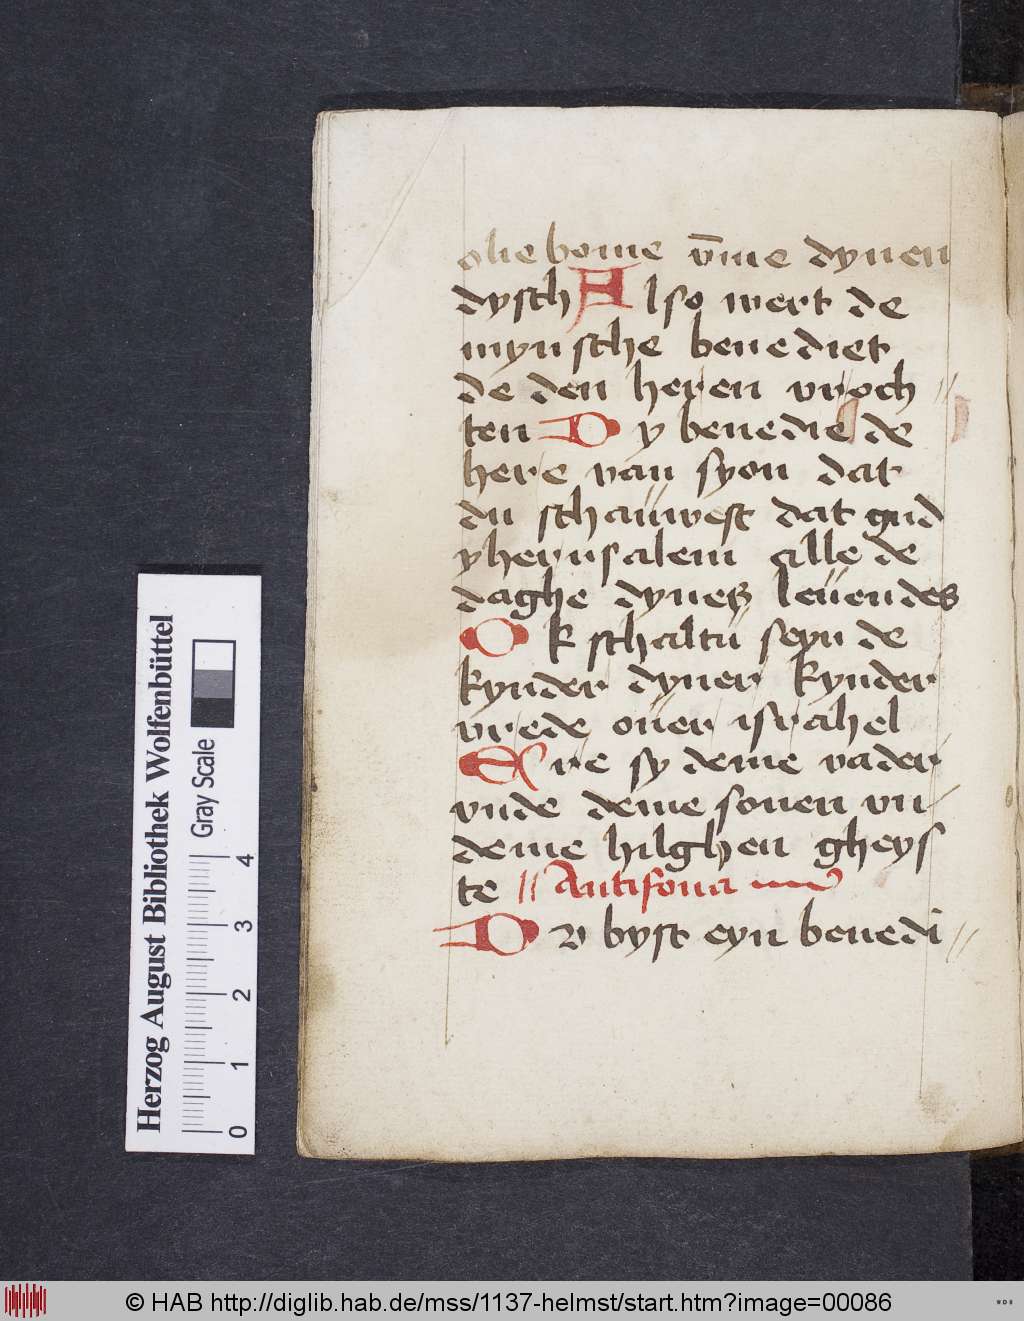 olie bome v̄me dynen
dysch Also wert de
mynsche benediet
de den heren vroch //
ten Dy benedie de
here van syon dat
du schauwest dat gud
yherusalem alle de
daghe dynes leuendes
Ok schaltu seyn de
kynder dyner kynder
vrede ouer israhel
Ere sy deme vader
vnde deme sonen vn
deme hilghen gheys
te // Antifona
Dv byst eyn benedi //
Herzog August Bibliothek Wolfenbüttel
Gray Scale
0 1 2 3 4
© HAB http://diglib.hab.de/mss/1137-helmst/start.htm?image=00086